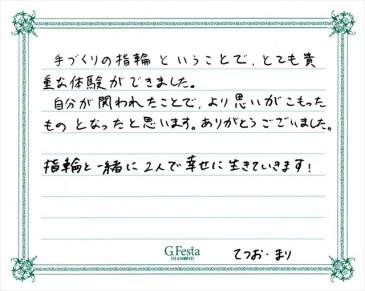 手づくりの指輪ということで、とても貴
重な体験ができました。
自分が関われたことで、より思いがこもった
ものとなったと思います。ありがとうございました。
指輪と一緒に2人で幸せに生きていきます!
G.Festa
DIAMOND
てつお・まり